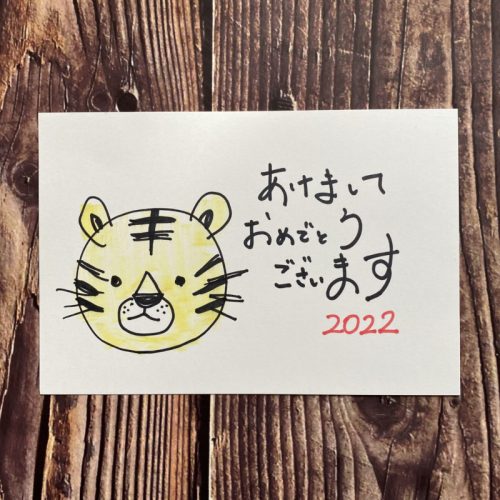 あけまして
おめでとう
ございます
2022